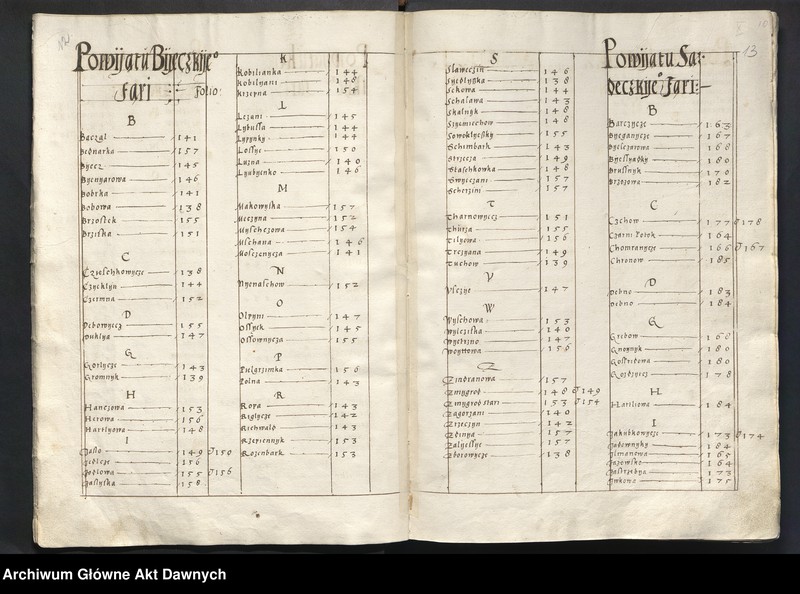 Powijatu Bijeczkije°
fari
Folio:
B
Baczal 141
Bednarka 157
Bijecz 145
Bijenyarowa 146
Bobrka 141
Bobowa 138
Brzostek 155
Brziska 151
C
Czyeschkowycze 138
Czyeklyn 144
Czermna 152
D
Debowyecz 155
Duklya 147
G
Gorlycze 143
Gromnyk 139
H
Hanczowa 153
Herowa 156
Harklyowa 148
I
Jasło 149 150
Jedlcze 156
Jodłowa 155 156
Jaslyska 158
K
Kobilianka 144
Kobilyani 148
Krzepna 154
L
Lezani 145
Lybussa 144
Lypynky 144
Lossye 150
Luzna 140
Lyubzenko 146
M
Makowyska 157
Meczyna 152
Mysscowa 154
Mschana 146
Mosczenycza 141
N
Nyenaschow 152
O
Olpyni 147
Ossyek 145
Ossownycza 155
P
Pielgrzimka 156
Polna 143
R
Ropa 143
Roglycze 142
Richwald 143
Rzepiennyk 153
Rozenbark 153
S
Slawęczin 146
Syedlyska 138
Sekowa 144
Schalawa 143
Skalnyk 148
Szyemiechow 148
Sowoklyeski 155
Schimbark 143
Strzeza 149
Staschkowka 148
Swyeczani 157
Scherzini 157
T
Tharnowyecz 151
Thurza 155
Tilyowa 156
Trczyana 149
Tuchow 139
V
Vsczye 147
W
Wyschowa 153
Wylcziska 140
Wyetrzno 147
Woytowa 156
Z
Zindranowa 157
Zmygrod 148 149
Zmygrod stari 153 154
Zagorzani 140
Zrzeczyn 142
Zdinya 157
Zalyessye 157
Zborowycze 138
13
Powijatu Sa:
deczkije° Fari:
B
Barczycze 163
Byegonycze 167
Byelczarowa 168
Byessyadky 180
Brusnyk 170
Brzozowa 182
C
Czchow 177 178
Czarni Potok 164
Chomranycze 166 167
Chronow 185
D
Dobno 183
Debno 184
G
Grebow 168
Gnoynyk 180
Gostrdowa 180
Gozdzyecz 178
H
Harliowa 184
I
Jakubkowycze 173 174
Jadownyky 184
Jlmanowa 165
Jazowsko 164
Jastrzebya 173
Jwkowa 175
Archiwum Główne Akt Dawnych